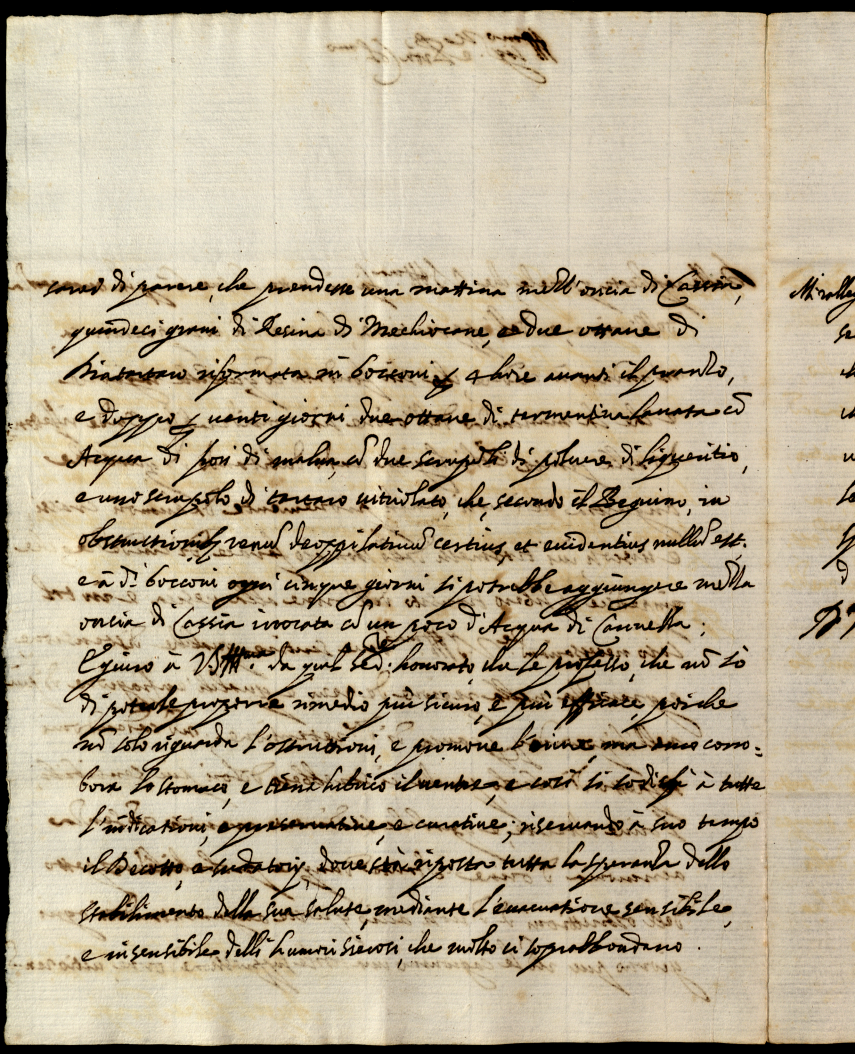 sarei di parere, che prendesse una mattina nell'oncia di Cassia,
quindeci grani di Resina di Mechiocane, e due ottane di
Diatartaro riformata in bocconi p 4 hore avanti il pranzo,
e doppo p venti giorni due ottane di termentina lavata cõ
Acqua di fiori di malva, cõ due scrupoli di polvere di liqueritio,
e uno scrupolo di tartaro vitriolato, che, secondo il Beguino, in
obstructionib, renũ deoppilativũ certius, et evidentius nullũ est.
e à di bocconi ogni cinque giorni si potrebbe aggiungere mezza
oncia di Cassia irrorata cõ un poco d'Acqua di Cannella.
E giuro à VS Ill.ma da quel Ser.e honorato, che le professo, che nõ sò
di poterle proporre rimedio più sicuro, e più efficace, poiche
nõ solo riguarda l'ostruttioni, e promove l'orine, ma anco corro=
bora lo stomaco, e tiene lubrico il ventre, e così si sodisfà à tutte
l'indicationi, e preservative, e curative; riservando à suo tempo
il Decotto, e sudatorij, dove stà riposta tutta la speranza dello
stabilimento della sua salute, mediante l'evacuatione sensibile,
e insensibile delli humori sierosi, che molto ci soprabbondano.
Mi ralleg